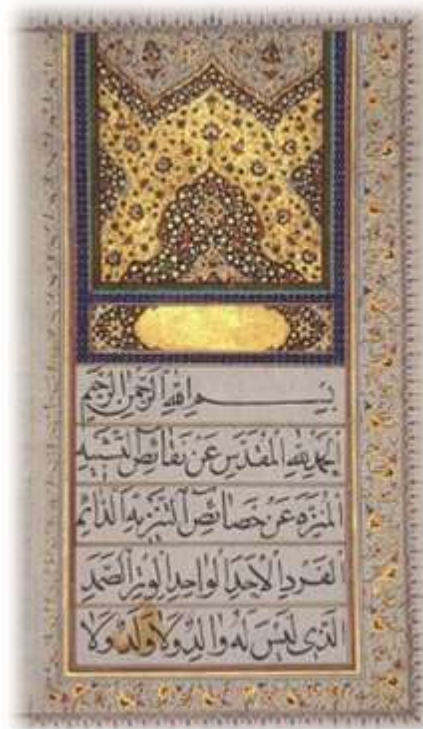 بِسْمِ اللهِ الرَّحْمٰنِ الرَّحِيْمِ
اَلْحَمْدُ لِلّٰهِ الْمُقَدَّسِ عَنْ نَقَائِصِ التَّشْبِيْهِ
الْمُنَزَّهِ عَنْ خَصَائِصِ التَّنْزِيْهِ الدَّائِمِ
الْفَرْدِ الْاَحَدِ الْوَاحِدِ الْوِتْرِ الصَّمَدِ
الَّذِىْ لَيْسَ لَهُ وَالِدٌ وَلَا وَلَدٌ وَلَا